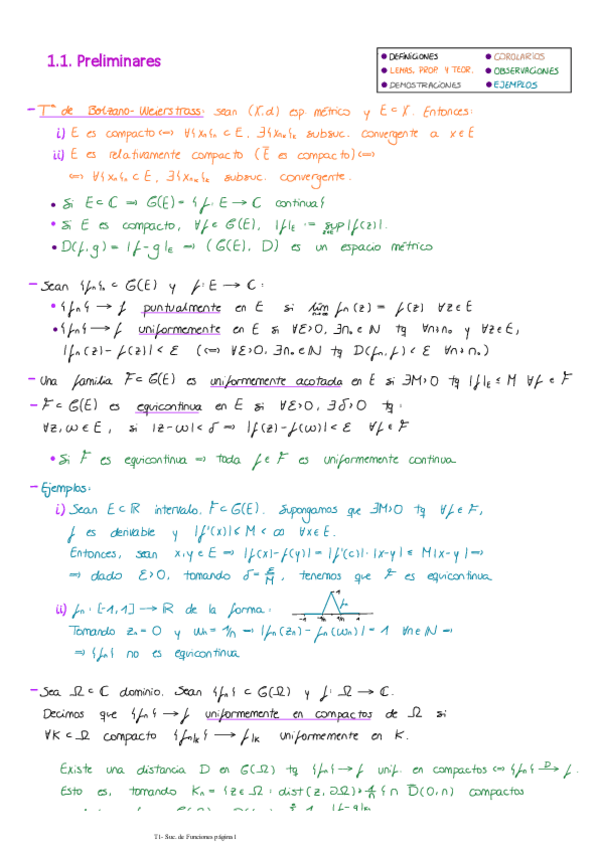 1.1. Preliminares
• DEFINICIONES
• LEMAS, PROP. Y TEOR.
• DEMOSTRACIONES
• COROLARIOS
• OBSERVACIONES
• EJEMPLOS
- Tª de Bolzano-Weierstrass: sean (X,d) esp. métrico y E ⊂ X. Entonces:
i) E es compacto ⟺ ∀{xₙ}ₙ ⊂ E, ∃{xₙₖ}ₖ subsuc. convergente a x ∈ E
ii) E es relativamente compacto (Ē es compacto) ⟺
⟺ ∀{xₙ}ₙ ⊂ E, ∃{xₙₖ}ₖ subsuc. convergente.
• Si E ⊂ ℂ ⟹ G(E) = {f: E → ℂ continua}
• Si E es compacto, ∀f ∈ G(E), |f|_E := sup_{z∈E} |f(z)|.
• D(f,g) = |f-g|_E ⟹ (G(E), D) es un espacio métrico
- Sean {fₙ}ₙ ⊂ G(E) y f: E → ℂ:
• {fₙ} → f puntualmente en E si lím_{n→∞} fₙ(z) = f(z) ∀z ∈ E
• {fₙ} → f uniformemente en E si ∀ε>0, ∃n₀ ∈ ℕ tq ∀n>n₀ y ∀z ∈ E,
|fₙ(z) - f(z)| < ε (⟺ ∀ε>0, ∃n₀ ∈ ℕ tq D(fₙ,f) < ε ∀n>n₀)
- Una familia F ⊂ G(E) es uniformemente acotada en E si ∃M>0 tq |f|_E ≤ M ∀f ∈ F
- F ⊂ G(E) es equicontinua en E si ∀ε>0, ∃δ>0 tq:
∀z,w ∈ E, si |z-w| < δ ⟹ |f(z)-f(w)| < ε ∀f ∈ F
• Si F es equicontinua ⟹ toda f ∈ F es uniformemente continua
- Ejemplos:
i) Sean E ⊂ ℝ intervalo, F ⊂ G(E). Supongamos que ∃M>0 tq ∀f ∈ F,
f es derivable y |f'(x)| ≤ M < ∞ ∀x ∈ E.
Entonces, sean x,y ∈ E ⟹ |f(x)-f(y)| = |f'(c)|·|x-y| ≤ M|x-y| ⟹
⟹ dado ε>0, tomando δ = ε/M, tenemos que F es equicontinua
ii) fₙ: [-1,1] → ℝ de la forma:
1
fₙ
-1 -1/n 1/n 1
Tomando zₙ = 0 y wₙ = 1/n ⟹ |fₙ(zₙ) - fₙ(wₙ)| = 1 ∀n ∈ ℕ ⟹
⟹ {fₙ} no es equicontinua
- Sea Ω ⊂ ℂ dominio. Sean {fₙ} ⊂ G(Ω) y f: Ω → ℂ.
Decimos que {fₙ} → f uniformemente en compactos de Ω si
∀K ⊂ Ω compacto {fₙ|ₖ} → f|ₖ uniformemente en K.
Existe una distancia D en G(Ω) tq {fₙ} → f unif. en compactos ⟺ {fₙ} →ᴰ f.
Esto es, tomando Kₙ = {z ∈ Ω : dist(z,∂Ω) > 1/n} ∩ D̄(0,n) compactos
T1- Suc. de Funciones página 1